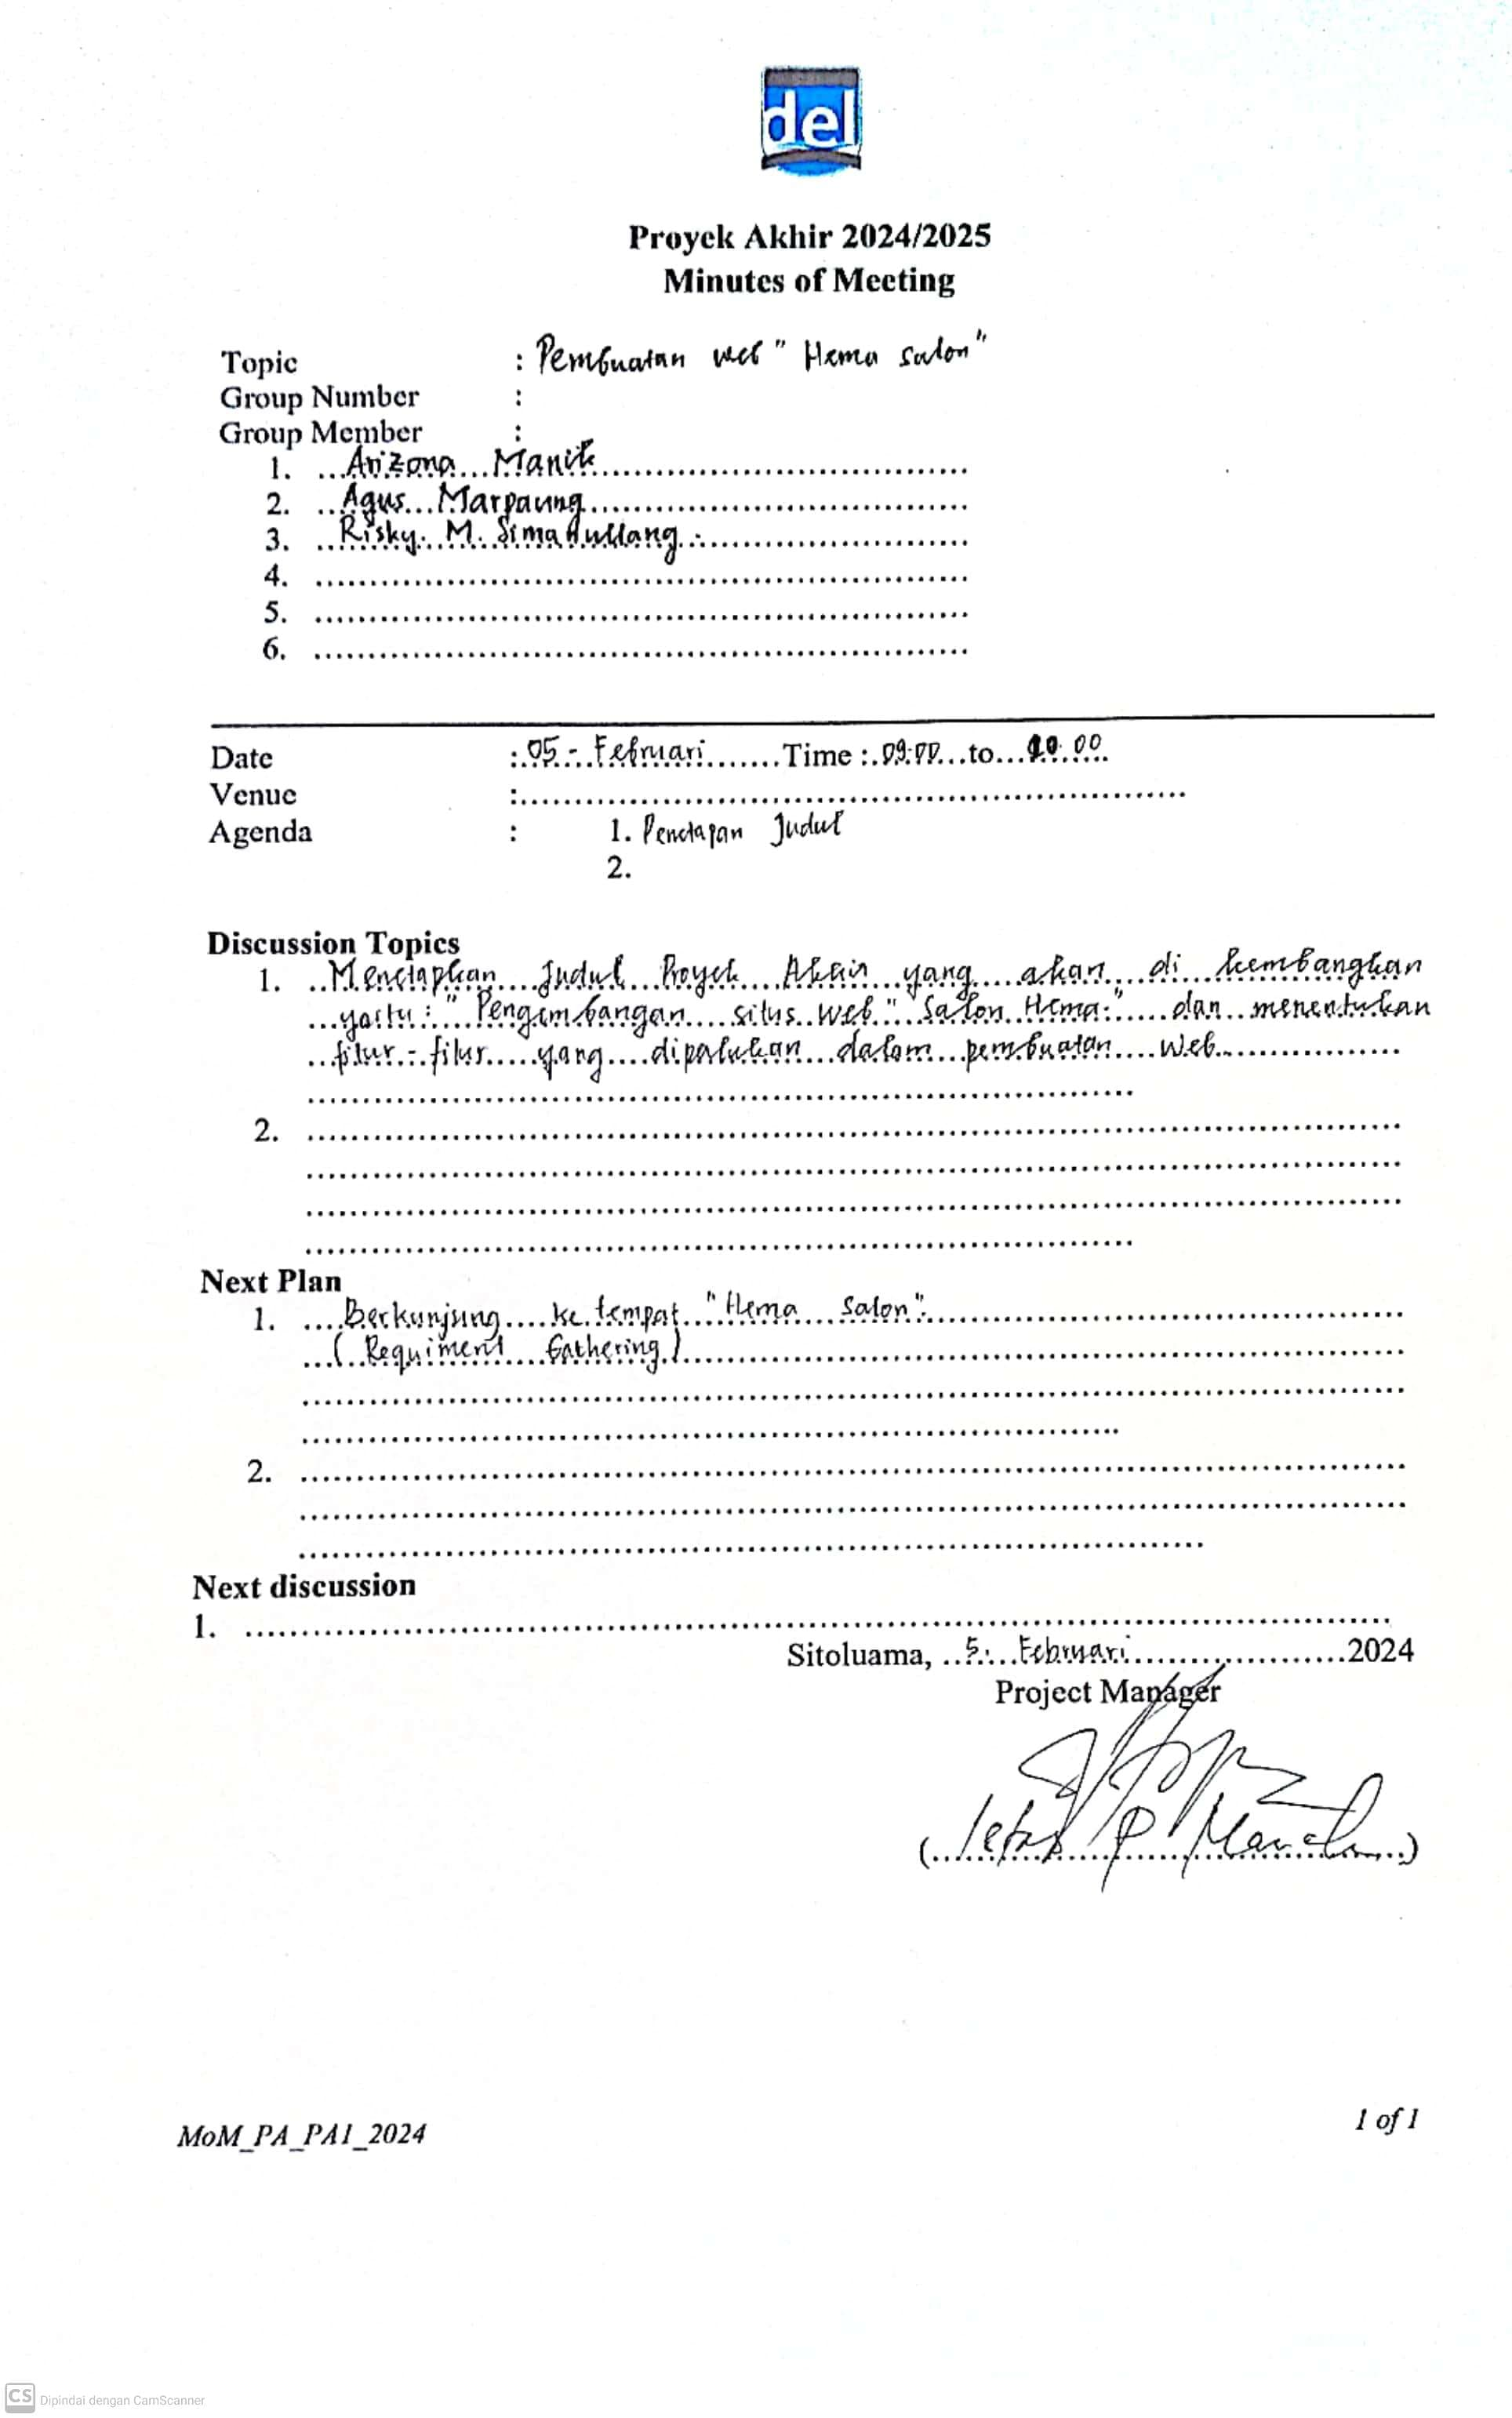 del
Proyek Akhir 2024/2025
Minutes of Meeting
Topic : Pembuatan web "Hema salon"
Group Number :
Group Member :
1. Arizona Manik
2. Agus Marpaung
3. Risky. M. Simanullang
4.
5.
6.
Date : 05 - Februari Time : 09.00 to 10.00
Venue :
Agenda : 1. Penetapan Judul
2.
Discussion Topics
1. Menetapkan Judul Proyek Akhir yang akan di kembangkan
yaitu : "Pengembangan situs web "Salon Hema" dan menentukan
fitur - fitur yang diperlukan dalam pembuatan web
2.
Next Plan
1. Berkunjung ke tempat "Hema Salon"
( Requiment Gathering )
2.
Next discussion
1.
Sitoluama, 5 Februari 2024
Project Manager
MoM_PA_PA1_2024
1 of 1
CS Dipindai dengan CamScanner